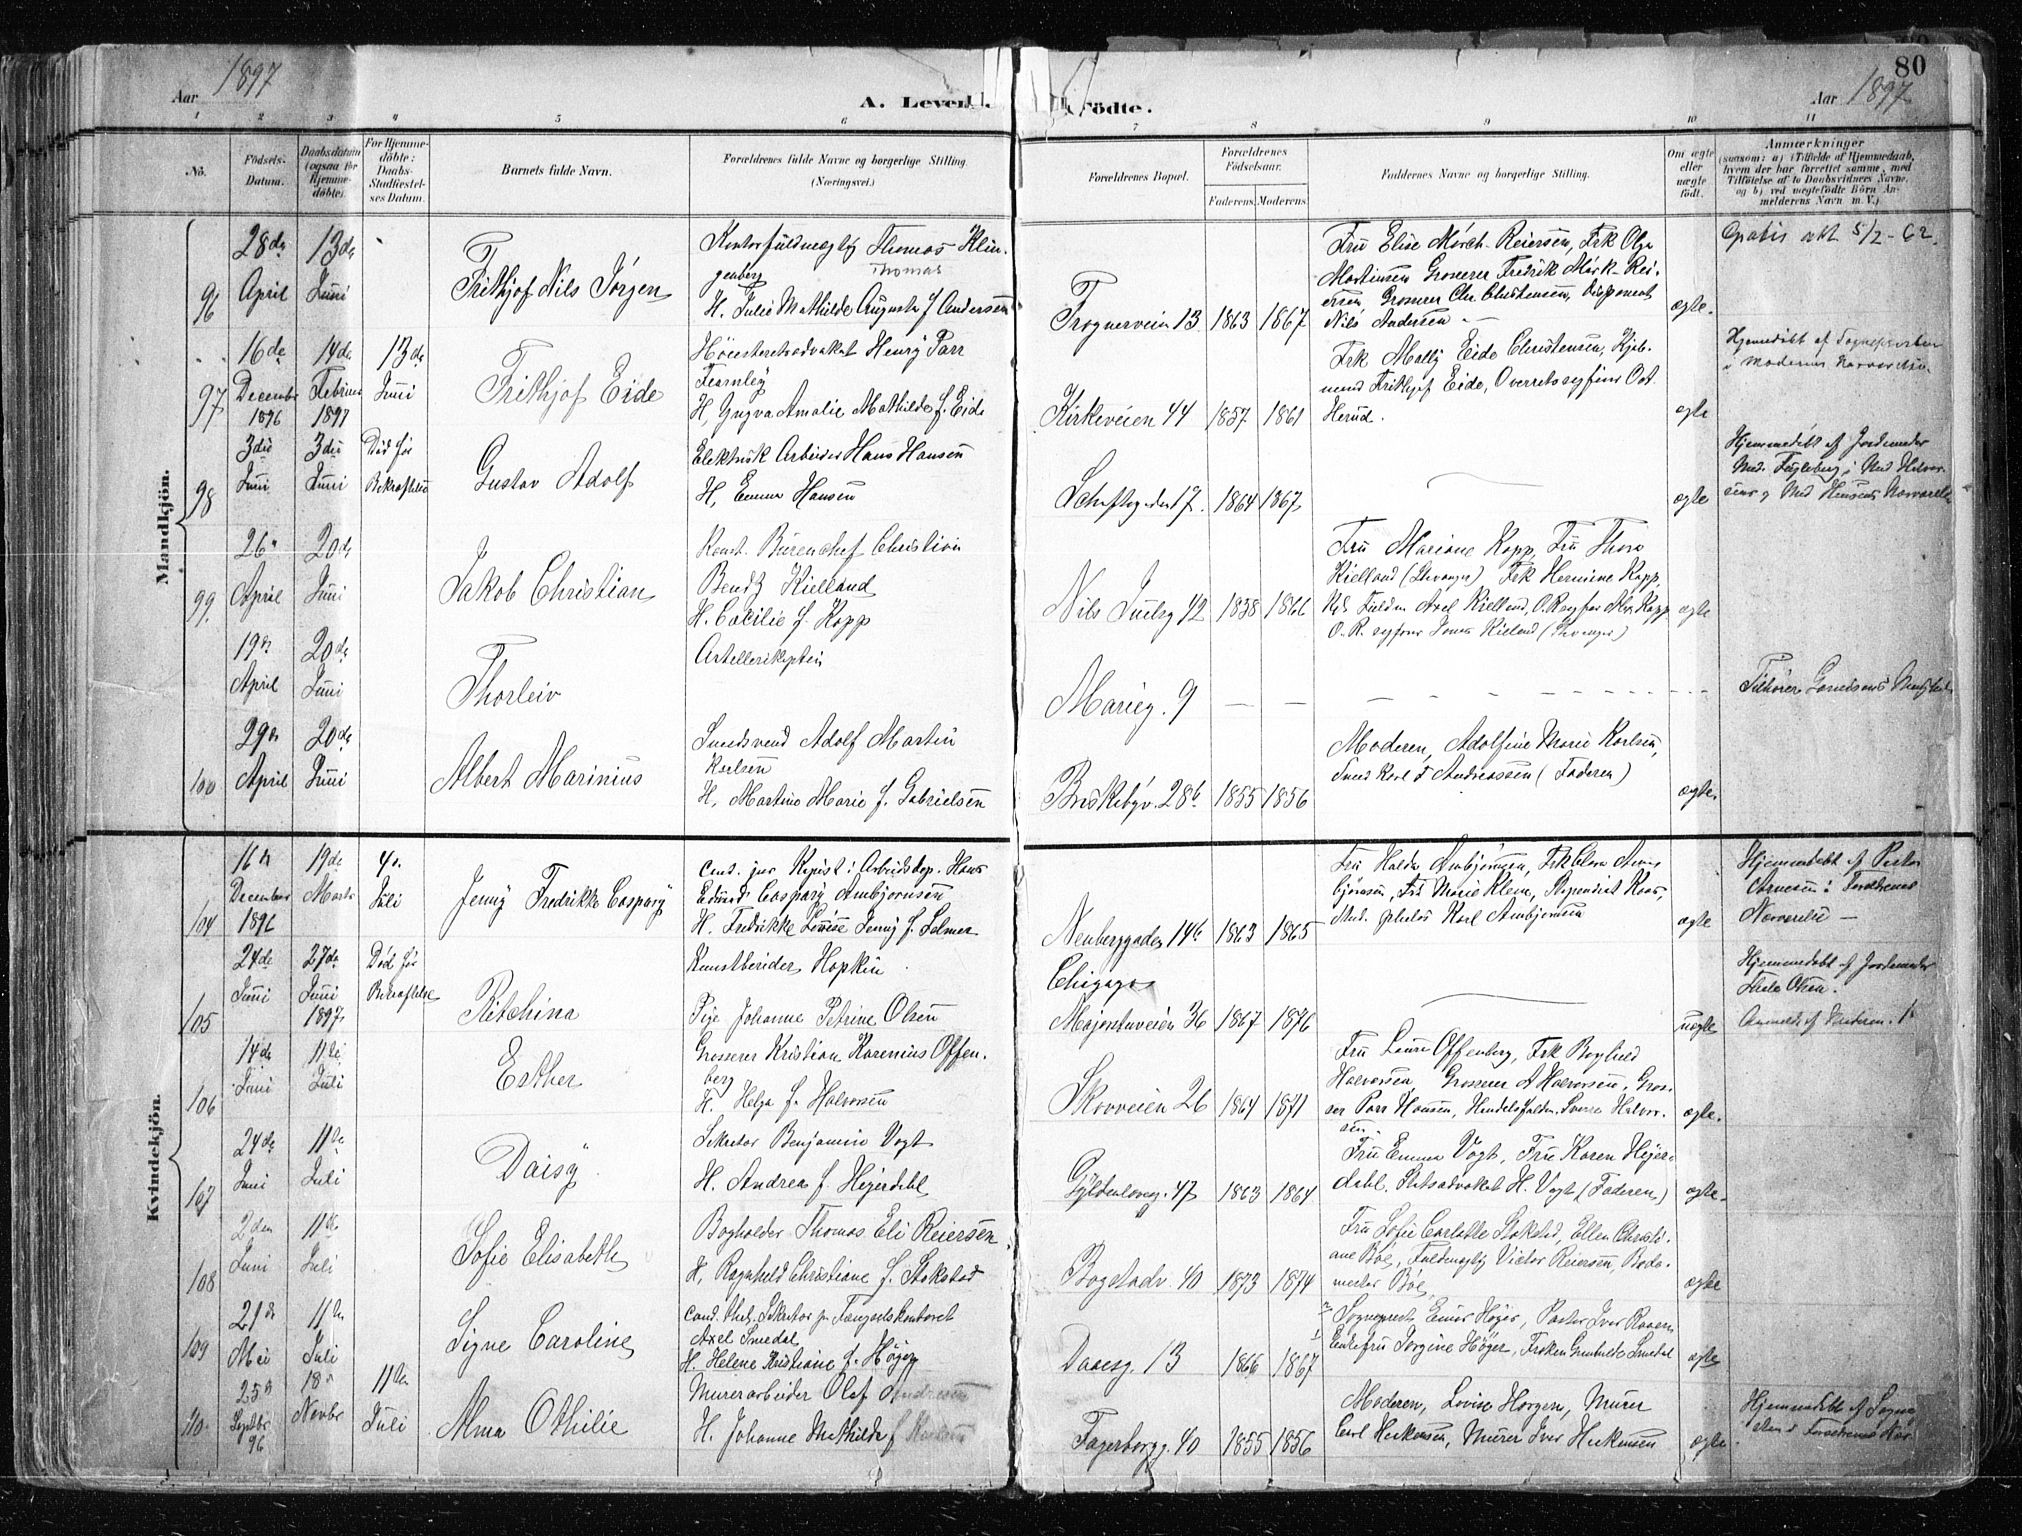 80
Aar 1897
A. Levende födte.
Aar 1897
1 2 3 4 5 6 7 8 9 10 11
No.
Födsels-Datum.
Daabsdatum (ogsaa for Hjemme-döbte).
For Hjemme-döbte: Daabs-Stadfæstel-ses Datum.
Barnets fulde Navn.
Forældrenes fulde Navne og borgerlige Stilling.
(Næringsvei.)
Forældrenes Bopæl.
Forældrenes Födselsaar.
Faderens. Moderens.
Faddernes Navne og borgerlige Stilling.
Om ægte eller uægte födt.
Anmærkninger
(saasom: a) i Tilfælde af Hjemmedaab,
hvem der har forrettet samme, med
Tilföielse af to Daabsvidners Navne,
og b) ved uægtefödte Börn An-
melderens Navn m. V.)
Mandkjön.
96
28de April
13de Juni
Frithjof Nils Jörgen
Kontorfuldmægtig Thomas Klin-
genberg
Thomas
H. Julie Mathilde Augusta f Andersen
Frognerveien 13
1863 1867
Fru Elise Mörch-Reiersen, Frk Olga
Martinsen Grosserer Fredrik Mörk-Rei-
ersen Grosserer Chr Christensen, Disponent
Nils Andersen
ægte.
Gratis akt 5/2-62.
97
16de December 1896
14de Februar 1897
13de Juni
Frithjof Eide
Höiesteretsadvokat Henry Parr
Fearnley
H, Yngva Amalie Mathilde f. Eide
Kirkeveien 44
1857 1861
Frk Molly Eide Christensen, Kjöb-
mand Frithjof Eide, Overretssagförer Ost
Herud.
ægte
Hjemmedöbt af Sognepresten
98
3die Juni
3die Juni
Död för Bekræftelse
Gustav Adolf
Elektrisk Arbeider Hans Hansen
H, Emma Hansen
Schaftsgaden 17.
1864 1867
ægte
Hjemmedöbt af Jordemoder
99.
26 April
20de Juni
Jakob Christian
Konst. Bureauchef Christian
Bendz Kielland
H. Cæcilie f. Kopp
Nils Juelsg 42
1838 1866
Fru Mariane Kopp, Fru Thora
Kielland (Stavanger) Frk Hermine Kopp,
Axel Kielland, O.R.sagför Alex Kopp
O. R. sagförer Jonas Kielland (Stavanger)
ægte
19de April
20de Juni
Thorleiv
Artillerikaptein
Marieg. 9
Tilhörer Garnisons Menighed
100
29de April
20de Juni
Albert Marinius
Smedsvend Adolf Martin
Karlsen
H, Martine Marie f. Gabrielsen
Briskebyv. 28b
1855 1856
Moderen, Adolfine Marie Karlsen,
Smed Karl F Andreassen (Faderen)
ægte.
Kvindekjön.
104
16de December 1896
19de Marts
4de Juli
Jenny Fredrikke Caspary
Cand. jur Kopist i Arbeidsdep. Hans
Edvard Caspary Ambjörnsen
H. Fredrikke Lovise Jenny f. Selmer
Neuberggaden 14b
1863 1865
Fru Hulda Ambjörnsen, Frk Clara Am-
björnsen, Fru Marie Klem, Stipendiat
Stud. philos Karl Ambjörnsen
ægte
Hjemmedöbt af Pastor
Arnesen i Forældrenes
Nærværelse —
105
24de Juni
27de Juni 1897
Död för Bekræftelse
Ritchina
Kunstberider Hopkin
Pige Johanne Petrine Olsen
Chigago
Majorstuveien 36
1867 1876
uægte
Hjemmedöbt af Jordemoder
Thale Olsen.
Anmeldt af Moderen.
106
14de Juni
11te Juli
Esther
Grosserer Kristian Karenius Offen-
berg
H. Helga f. Halvorsen
Skovveien 26
1864 1871
Fru Laura Offenberg, Frk Boghild
Halvorsen, Grosserer A Halvorsen, Gros-
ser Parr Hansen, Handelsfuldm. Sverre Halvor-
sen.
ægte.
107
24de Juni
11te Juli
Daisy
Sekretær Benjamin Vogt
H. Andrea f. Heyerdahl
Gyldenlövesg. 47
1863 1864
Fru Emma Vogt, Fru Karen Heyer-
dahl, Statsadvokat H. Vogt (Faderen)
ægte
108
2den Juni
11te Juli
Sofie Elisabeth
Bogholder Thomas Eli Reiersen
H, Ragnhild Christiane f. Stokstad
Bogstadv. 40
1873 1874
Fru Sofie Carlotte Stokstad, Ellen Christi-
ane Böe, Fuldmægtig Victor Reiersen, Bode-
mester Böe,
ægte
109
21de Mai
11te Juli
Signe Caroline
Cand. theol. Sekretær p. Fængselskontoret
Axel Smedal
H. Helene Kristiane f. Höyer
Daaesg. 13
1866 1867
Sogneprest Einar Höyer, Pastor Iver
Enkefru Jorgine Höyer, Fröken Gunhilde Smedal
ægte
110.
25de Septbr 96
18de Novbr
11te Juli
Alma Othilie
Murerarbeider Olaf Andresen
H. Johanne Mathilde f
Fagerborgg. 40
1855 1856
Moderen, Lovise Horgen, Murer
Carl Heskensen, Murer Iver Heskensen
ægte.
Hjemmedöbt af Sogne